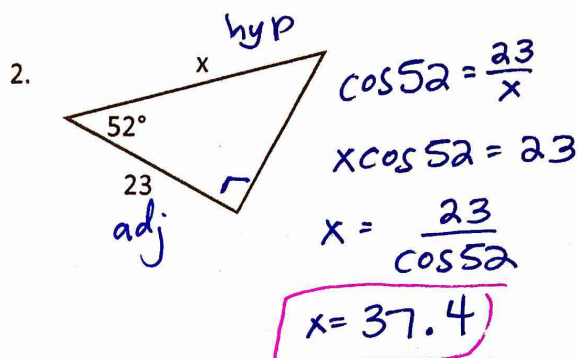 hyp
2.
x
52°
23
adj
cos52 = 23/x
xcos52 = 23
x = 23/cos52
x = 37.4